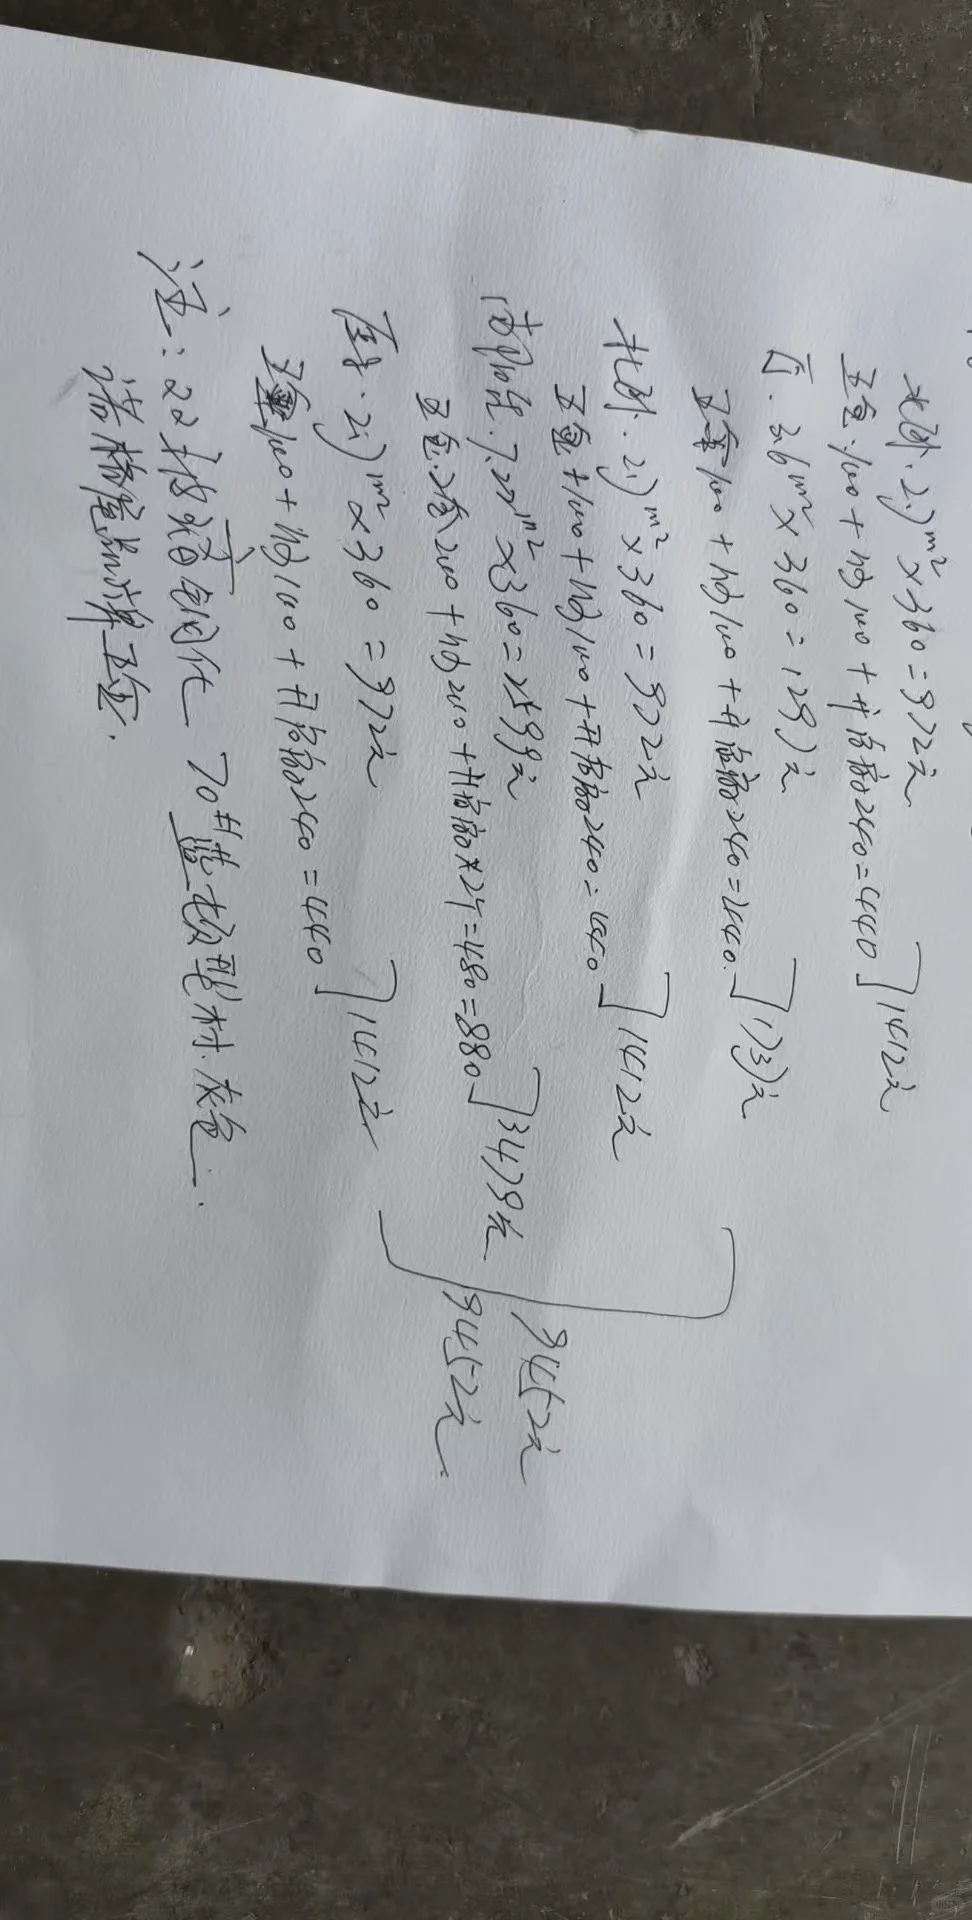 北卧.2.7m²×360=972元
五金.100+纱100+开启扇240=440 ]1412元
厅.3.6m²×360=1297元
五金100+纱100+开启扇240=440. ]1737元
北卧.2.7m²×360=972元
五金+100+纱100+开启扇240=440 ]1412元
南阳.7.22m²×360=2599元
五金.2套200+纱200+开启扇×2个=480=880 ]3479元
2.7m²×360=972元
五金100+纱100+开启扇240=440 ]1412元
9452元
9452元
注:22 钢化 70#盖 型材.灰色.
五金.